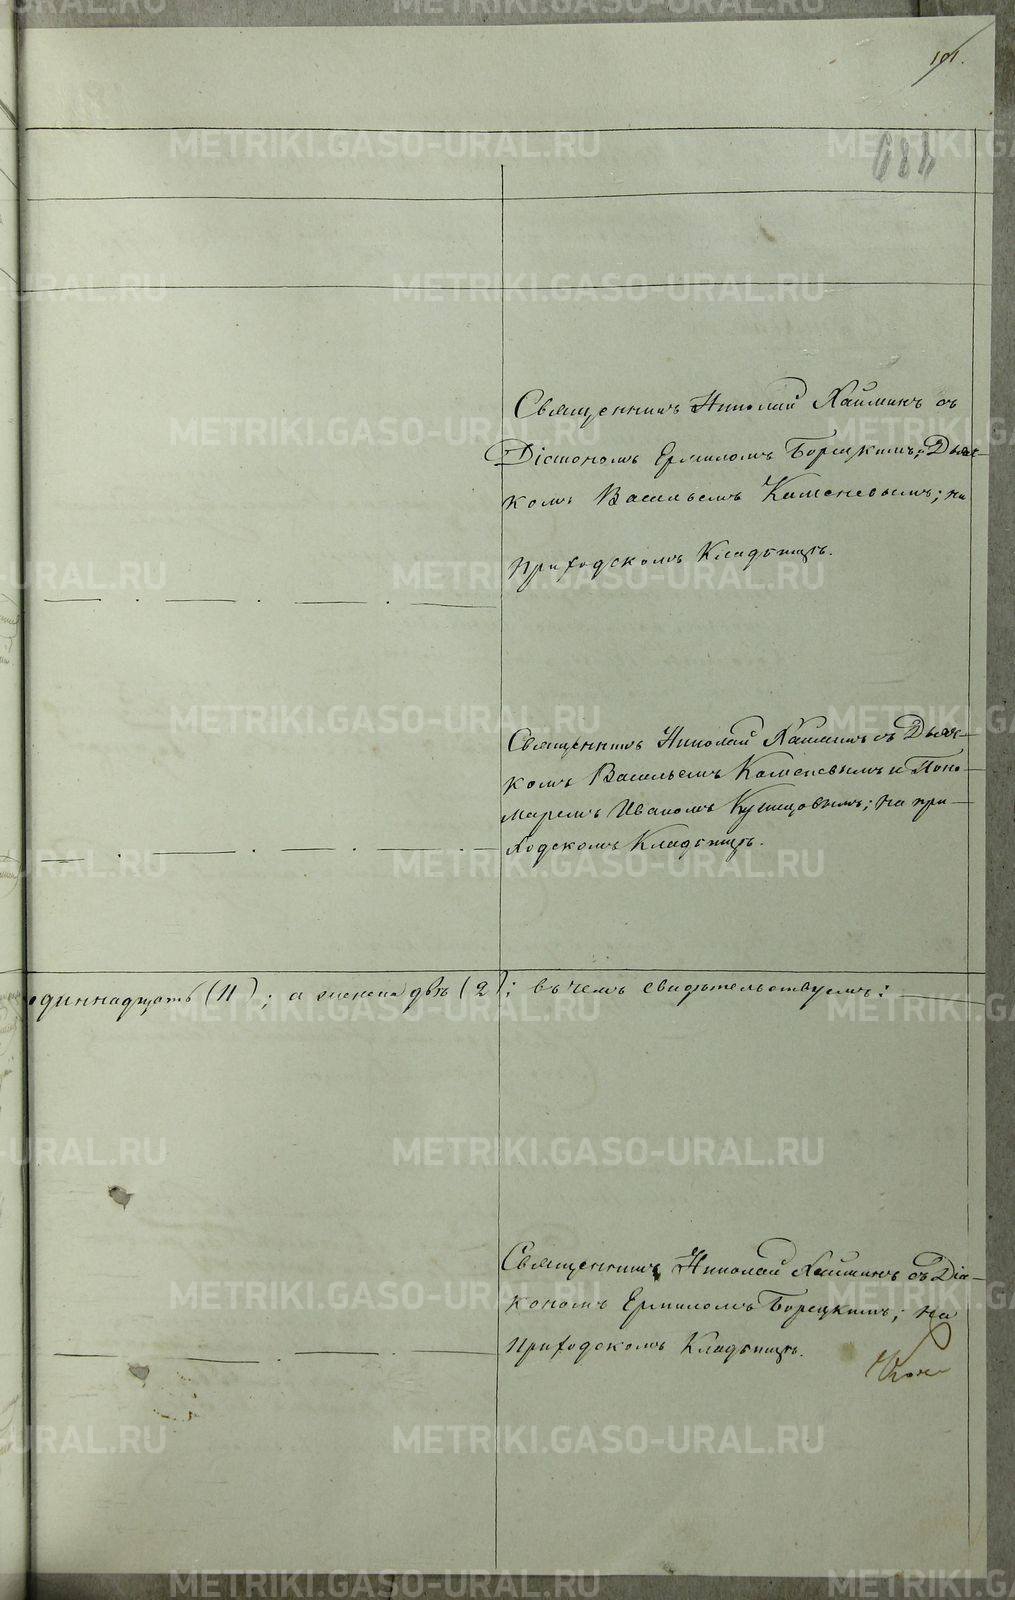 101.
Священникъ Николай Хайминъ съ
Діакономъ Ермиломъ Борецкимъ и Дьяч-
комъ Васильемъ Каменевымъ; на
Приходскомъ Кладбищѣ.
Священникъ Николай Хайминъ съ Дьяч-
комъ Васильемъ Каменевымъ и Поно-
маремъ Иваномъ Кузнецовымъ; на при-
ходскомъ Кладбищѣ.
одиннадцать (11); а женска двѣ (2); въ чемъ свидѣтельствуемъ:
Священникъ Николай Хайминъ съ Діа-
кономъ Ермиломъ Борецкимъ; на
Приходскомъ Кладбищѣ.
METRIKI.GASO-URAL.RU